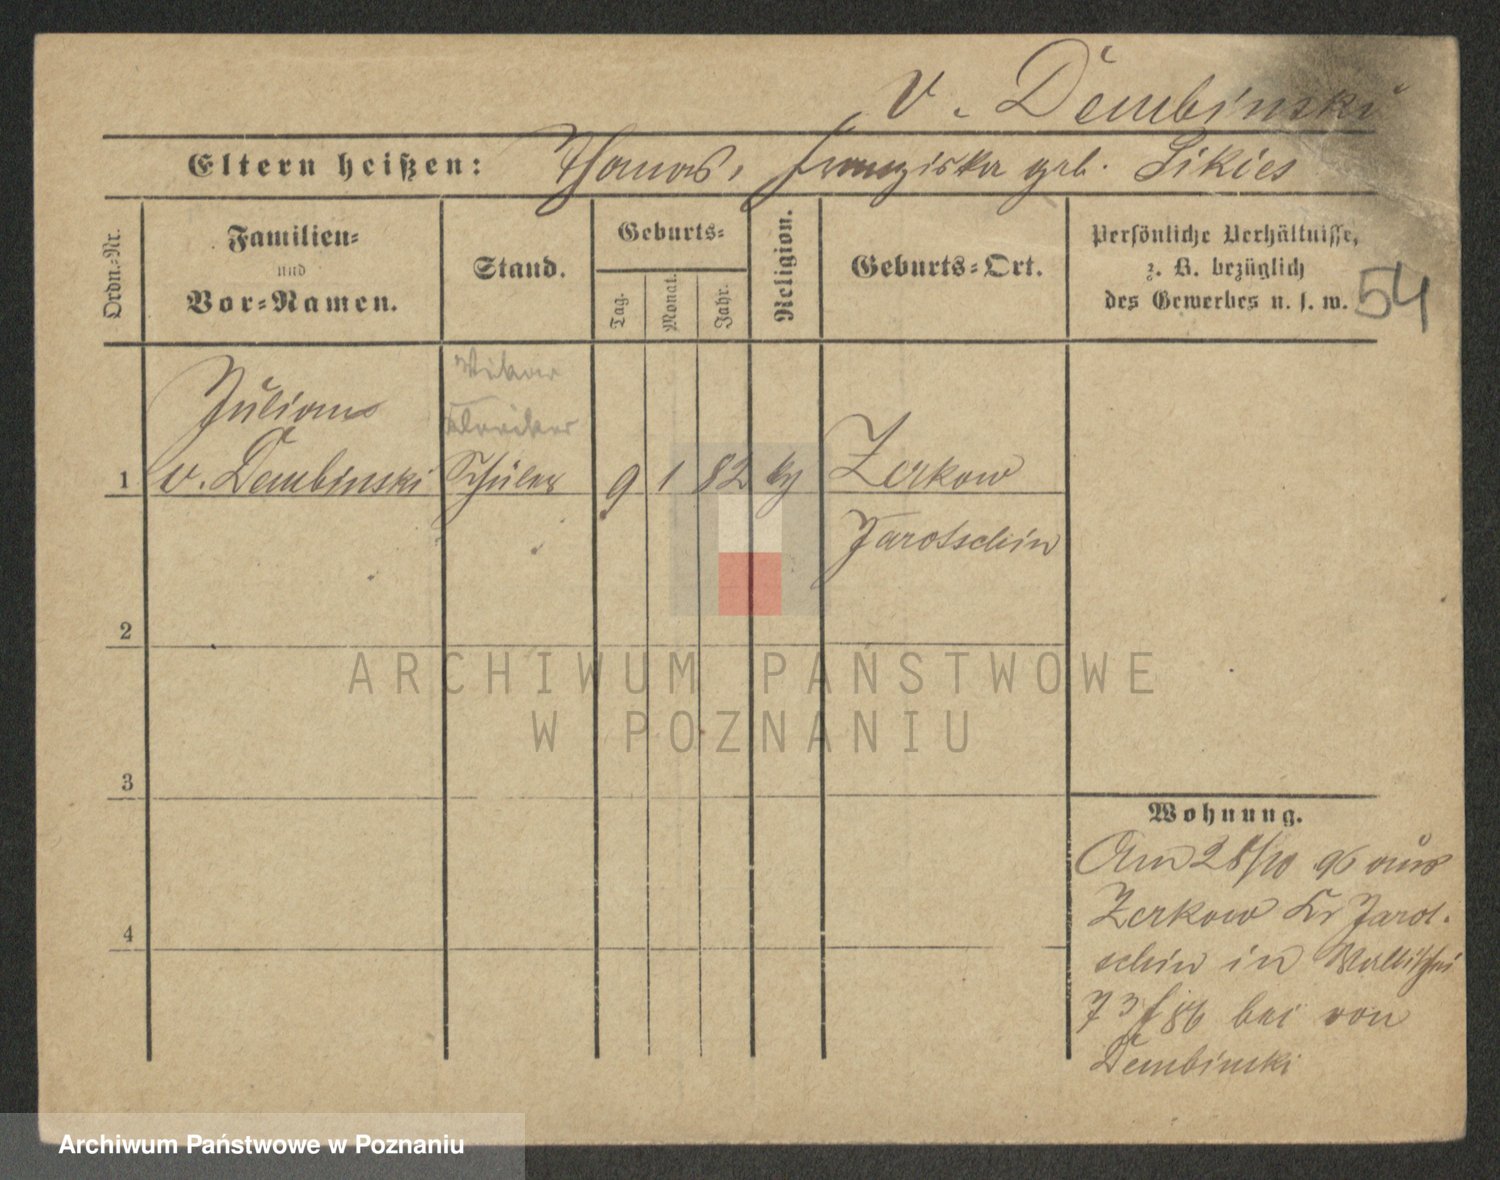 v. Dembinski
Eltern heißen: Thomas, Franziska geb. Sikies
Ordn.-Nr.
Familien-
und
Vor-Namen.
Stand.
Geburts-
Tag.
Monat.
Jahr.
Religion.
Geburts-Ort.
Persönliche Verhältnisse,
z. B. bezüglich
des Gewerbes u. s. w.
54
Vikar
Kleriker
Julian
1 v. Dembinski Schüler 9 1 82 Zerkow
Jarotschin
2
3
4
Wohnung.
Am 28/10 96 aus
Zerkow Kr Jarot-
schin in Wallischei
73 bei von
Dembinski
ARCHIWUM PAŃSTWOWE
W POZNANIU
Archiwum Państwowe w Poznaniu